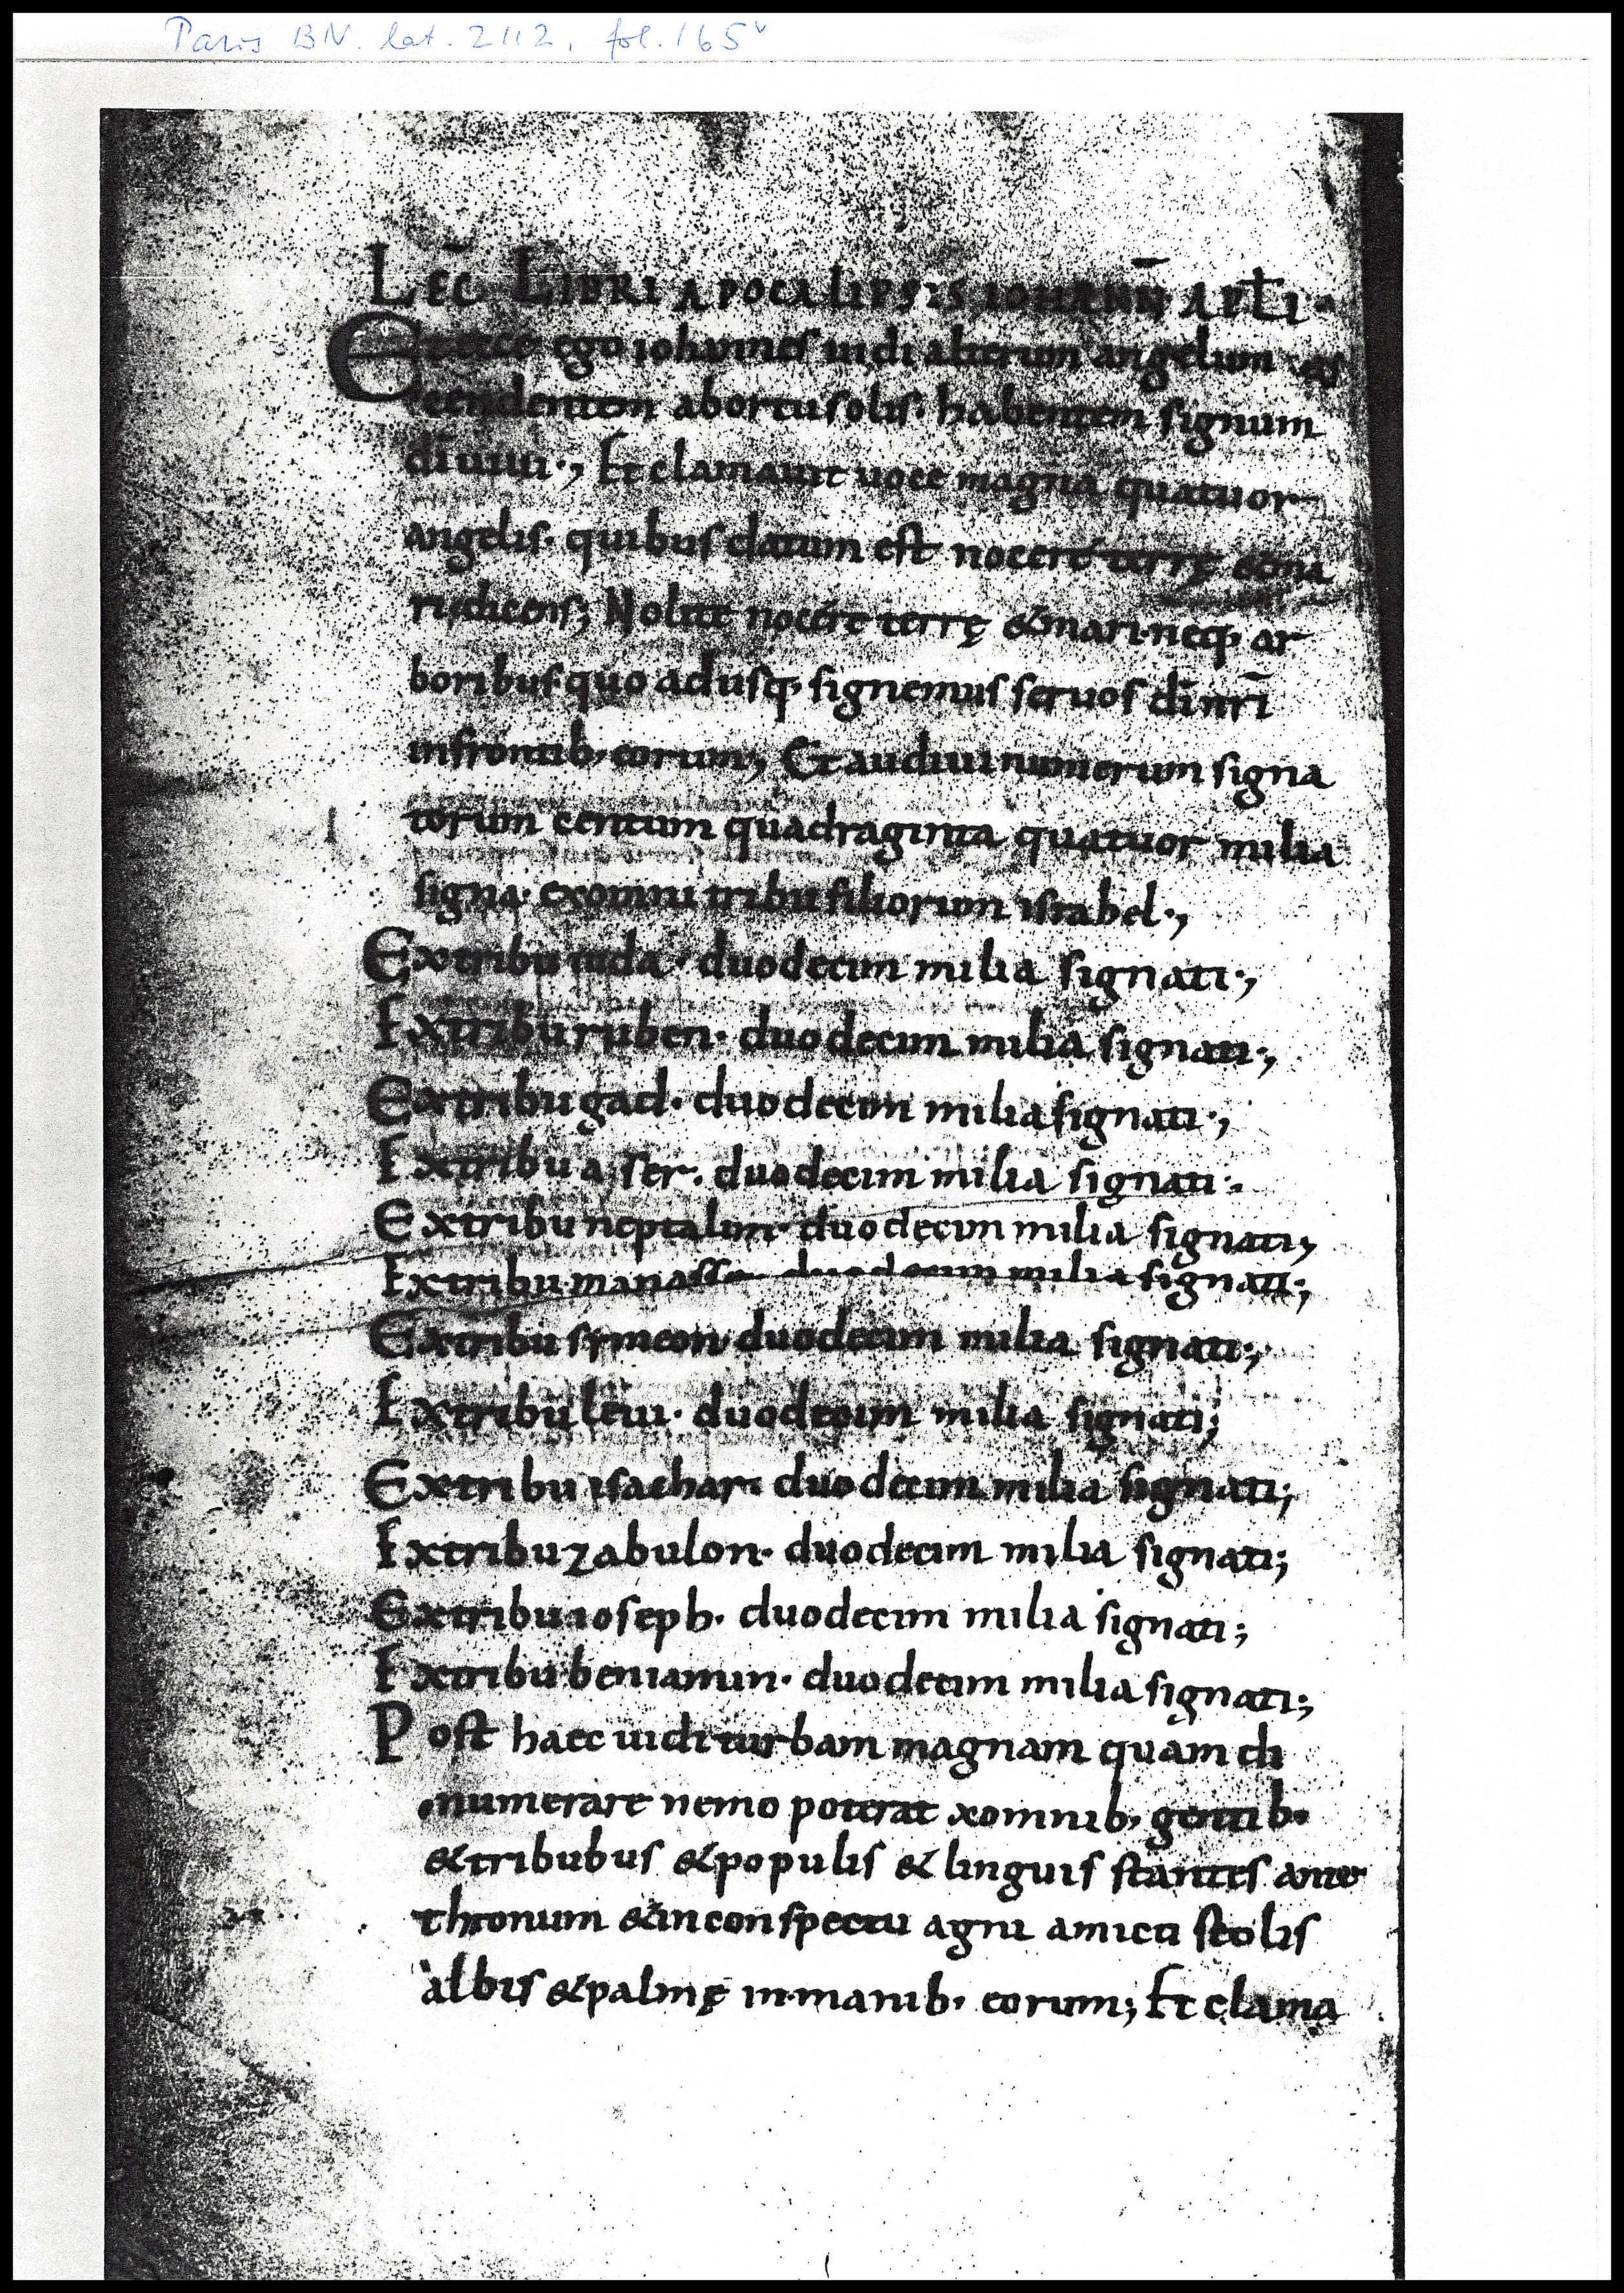 Paris BN. lat. 2112, fol. 165v
LEC̄ LIBRI APOCALIPSIS IOHANN̄ APŁI.
Et ecce ego iohannes uidi alterum angelum as
cendentem abortu solis· habentem signum
dī uiui·, Et clamauit uoce magna quatuor
angelis· quibus datum est nocere terrę & ma
ri dicens; Nolite nocere terrę & mari· neq, ar
boribus quo adusq, signemus seruos dī nrī
infrontib, eorum; Et audiui numerum signa
torum centum quadraginta quatuor milia
signa· exomni tribu filiorum israhel·,
Extribu iuda· duodecim milia signati·,
Extribu ruben· duodecim milia signati·,
Extribu gad· duodecim milia signati·,
Extribu aser· duodecim milia signati·
Extribu neptalim· duodecim milia signati;
Extribu manasse· duodecim milia signati;
Extribu symeon· duodecim milia signati;
Extribu leui· duodecim milia signati;
Extribu isachar· duodecim milia signati;
Extribu zabulon· duodecim milia signati;
Extribu ioseph· duodecim milia signati;
Extribu beniamin· duodecim milia signati;
Post haec uidi turbam magnam quam di
numerare nemo poterat xomnib, gentib·
& tribubus & populis & linguis stantes ante
thronum & inconspectu agni amicti stolis
albis & palmę in manib· eorum; Et clama